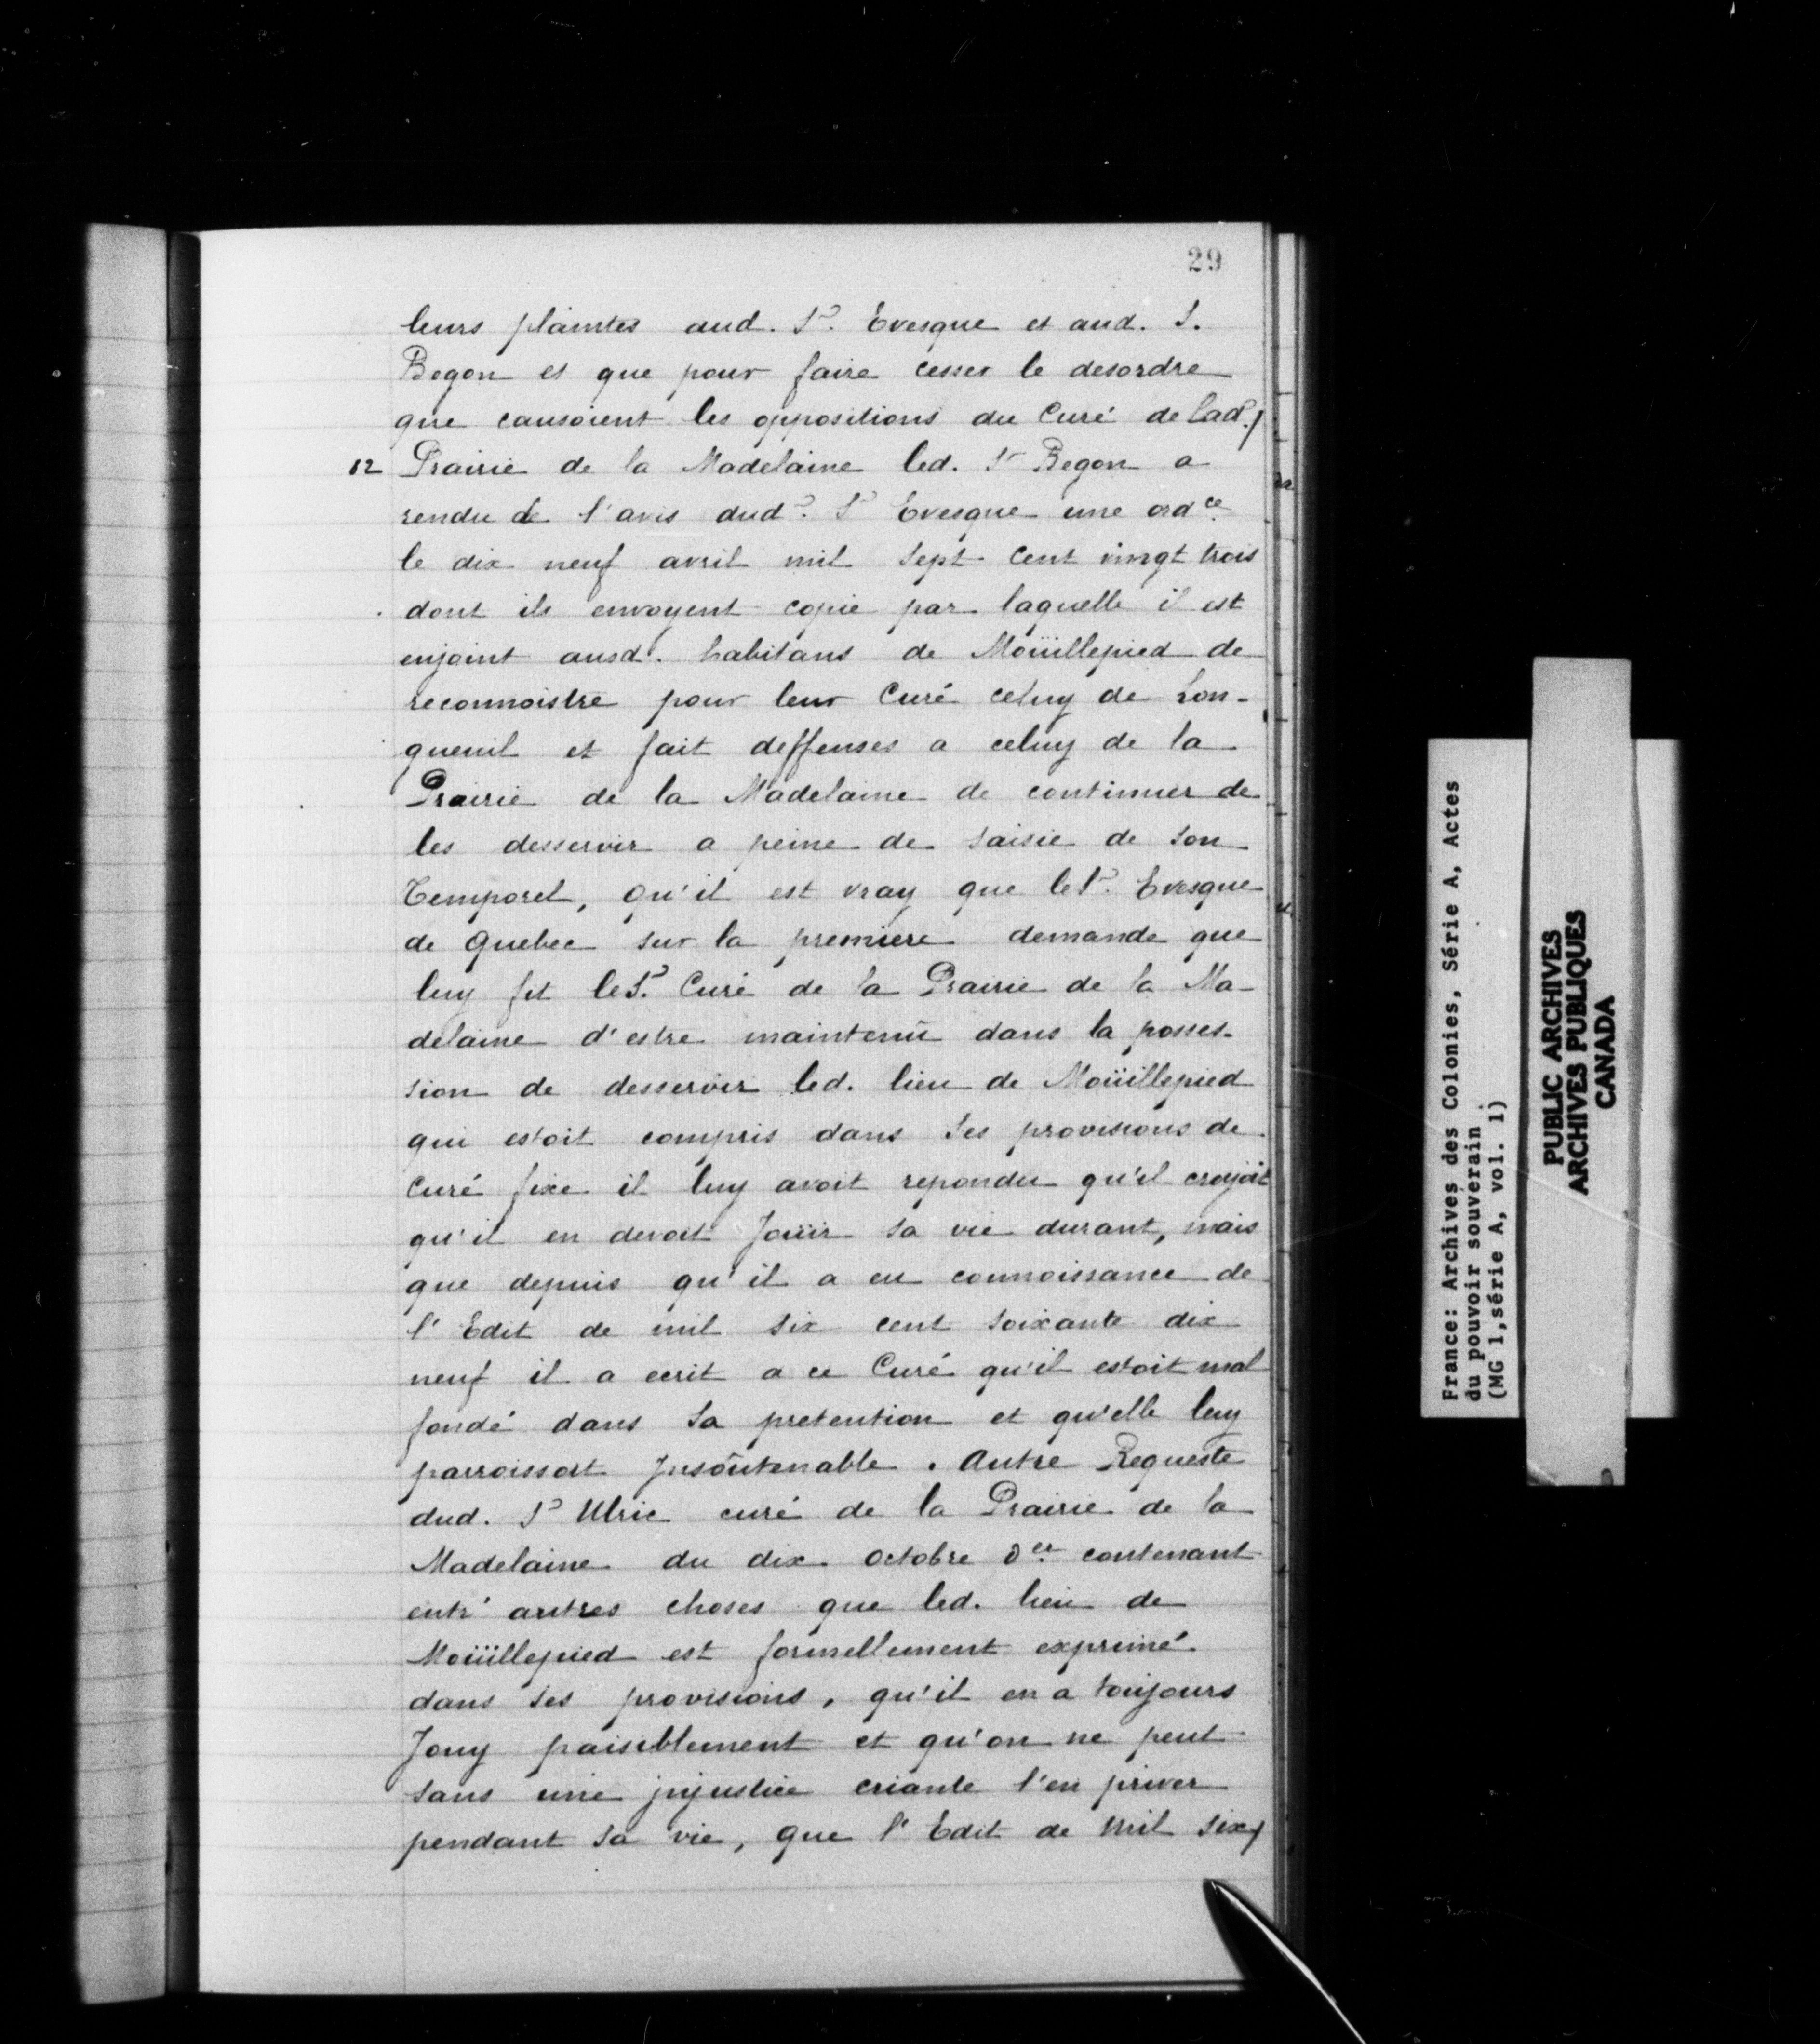 29
leurs plaintes aud. Sr. Evesque et aud. S.
Begon et que pour faire cesser le desordre
que causoient les oppositions du Curé de lad./
12 Prairie de la Madelaine led. Sr Begon a
rendu de l'avis dud. Sr Evesque une ordce
le dix neuf avril mil sept cent vingt trois
dont ils envoyent copie par laquelle il est
enjoint ausd. habitans de Moüillepied de
reconnoistre pour leur Curé celuy de Lon-
gueuil et fait deffenses a celuy de la
Prairie de la Madelaine de continuer de
les desservir a peine de saisie de son
Temporel, qu'il est vray que le Sr. Evesque
de Quebec sur la premiere demande que
luy fit le Sr. Curé de la Prairie de la Ma-
delaine d'estre maintenu dans la posses-
sion de desservir led. lieu de Moüillepied
qui estoit compris dans ses provisions de
Curé fixe il luy avoit repondu qu'il croyoit
qu'il en devoit Joüir sa vie durant, mais
que depuis qu'il a eu connoissance de
l'Edit de mil six cent soixante dix
neuf il a ecrit a ce Curé qu'il estoit mal
fondé dans sa pretention et qu'elle luy
parroissoit Jnsoutenable. Autre Requeste
dud. Sr Ulric curé de la Prairie de la
Madelaine du dix octobre der contenant
entr'autres choses que led. lieu de
Moüillepied est formellement exprimé
dans ses provisions, qu'il en a toujours
Jouy paisiblement et qu'on ne peut
sans une jnjustice criante l'en priver
pendant sa vie, que l'Edit de mil six/
France: Archives des Colonies, Série A, Actes
du pouvoir souverain
(MG 1,série A, vol. 1)
PUBLIC ARCHIVES
ARCHIVES PUBLIQUES
CANADA